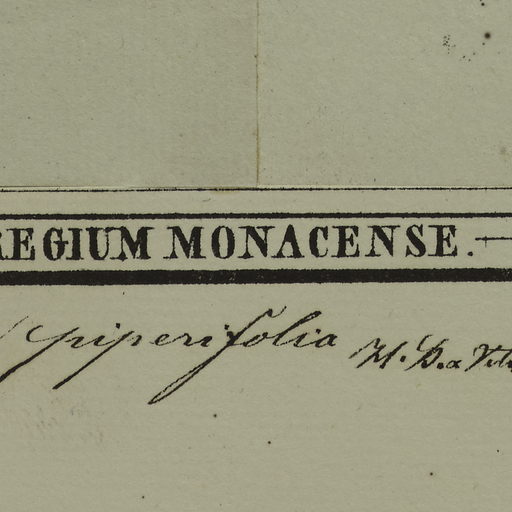 REGIUM MONACENSE.
piperifolia H. B.